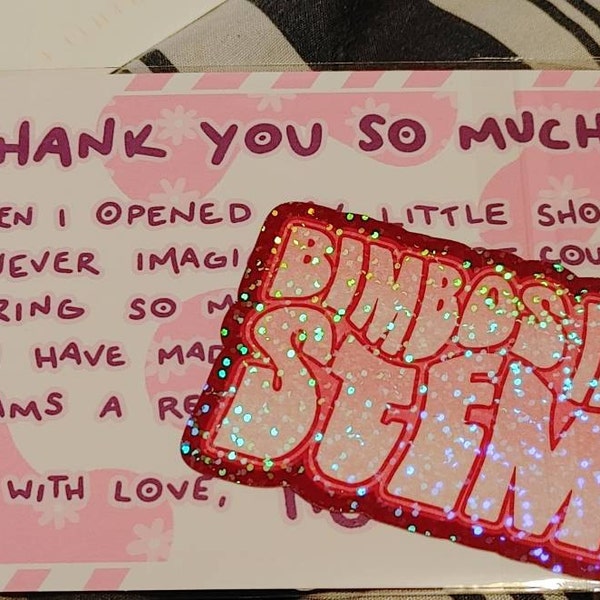 HANK YOU SO MUCH
EN I OPENED LITTLE SHO
NEVER IMAGI COU
RING SO M
HAVE MAD
AMS A RE
WITH LOVE,
BIMBOS
STEM